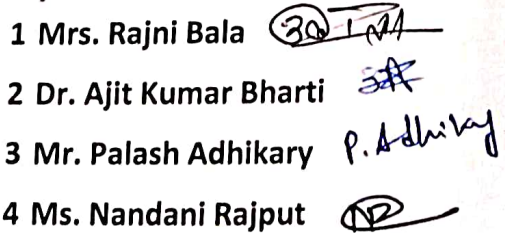 1 Mrs. Rajni Bala
2 Dr. Ajit Kumar Bharti
3 Mr. Palash Adhikary P. Adhikary
4 Ms. Nandani Rajput NR